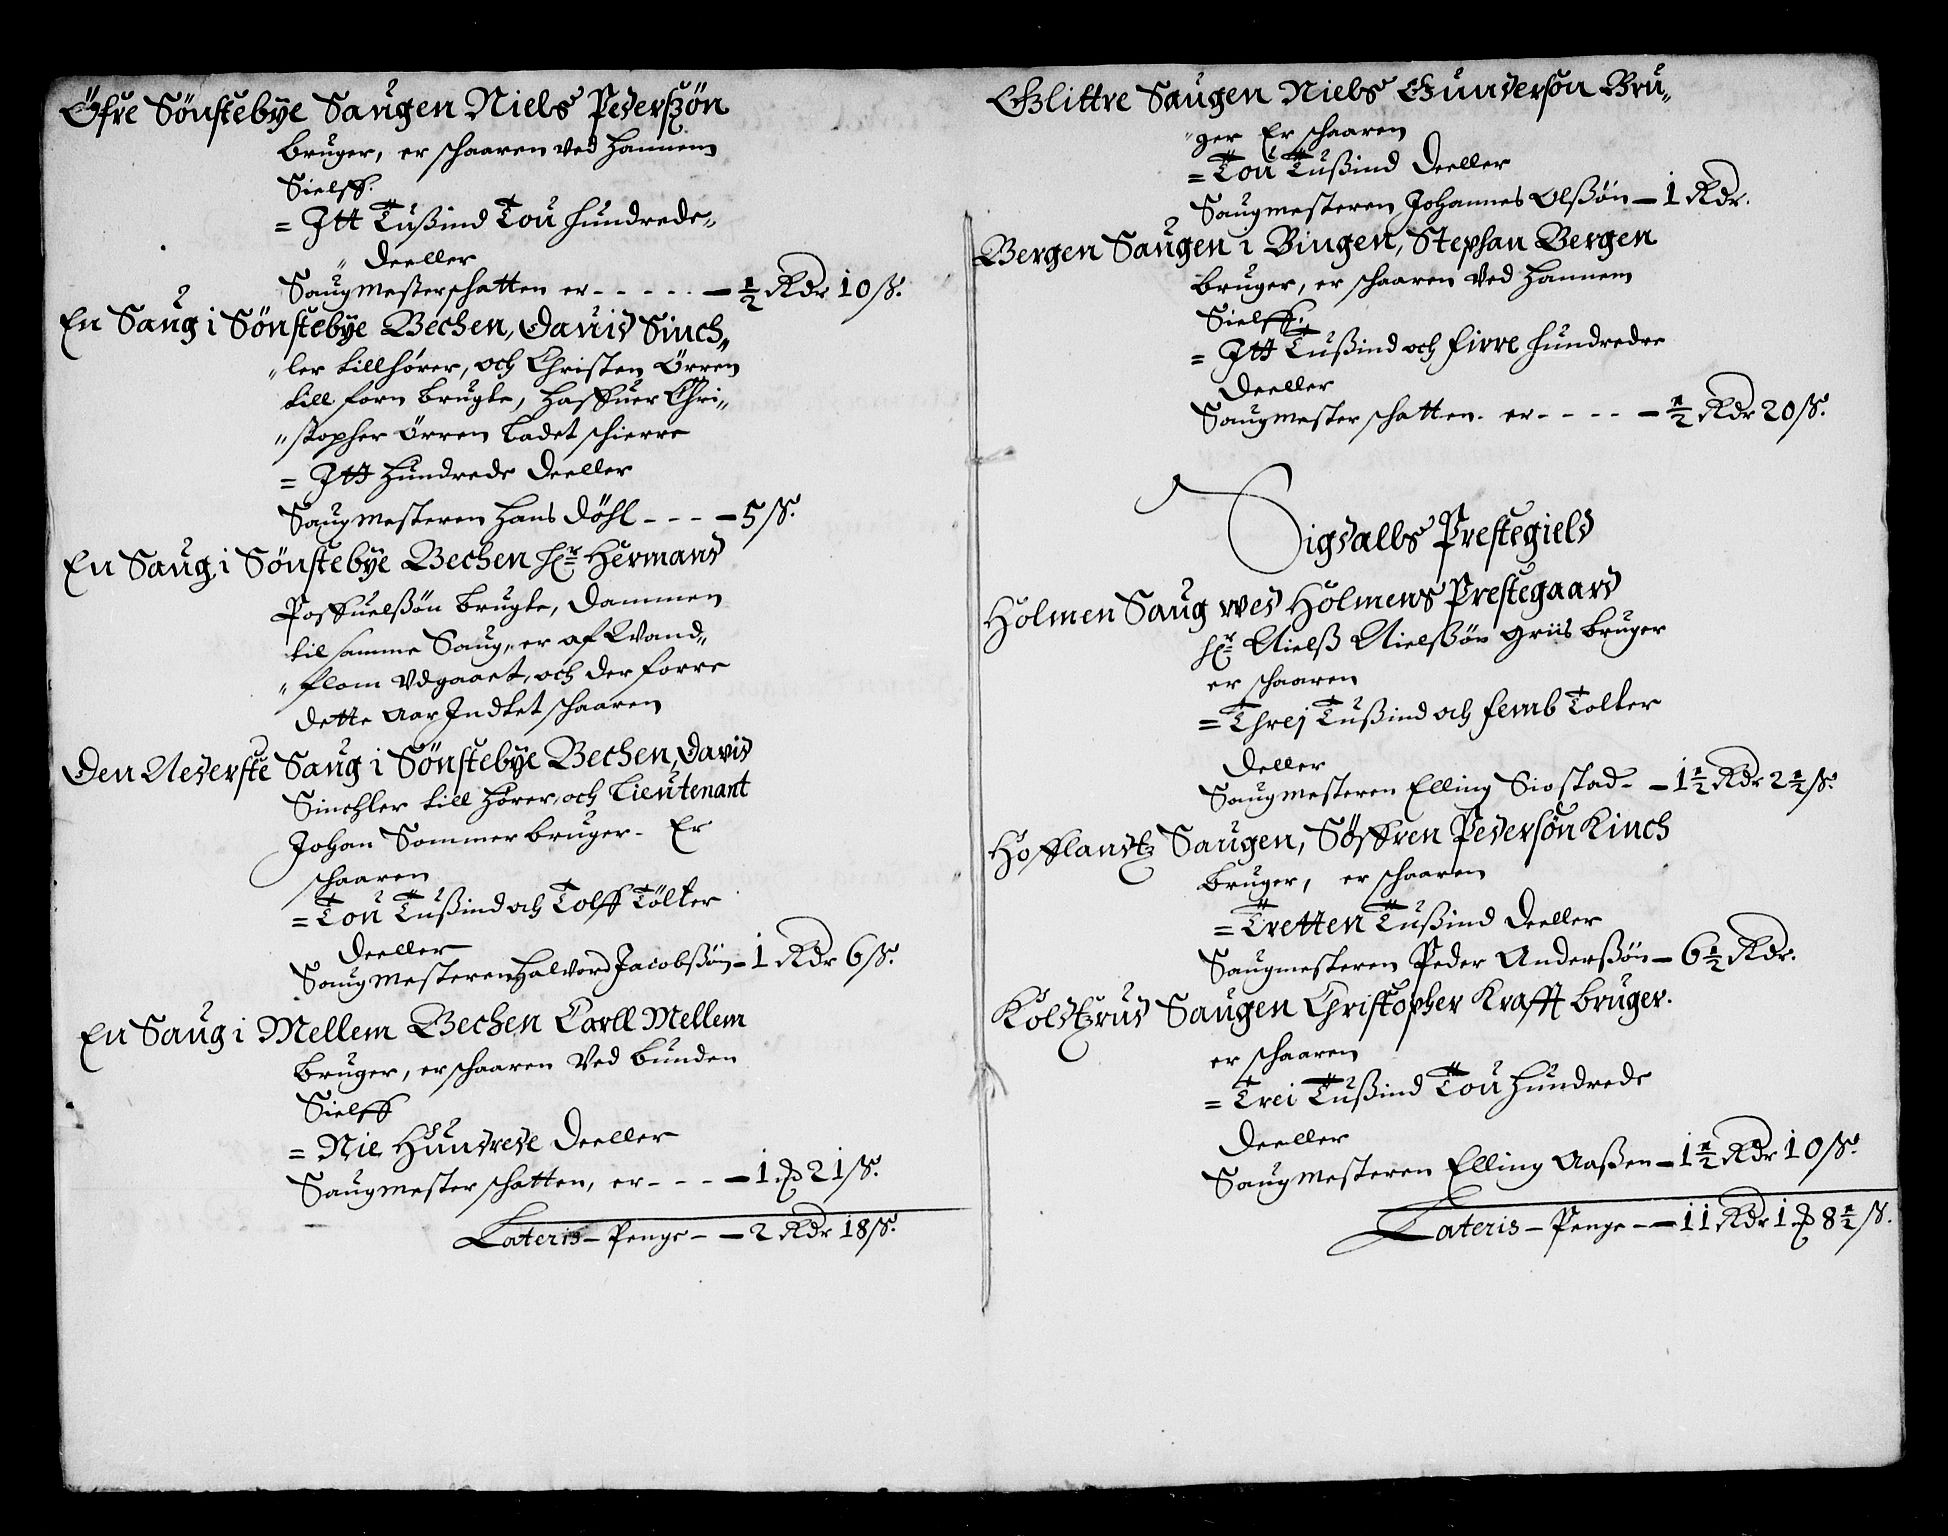 Öfre Sönstebÿe Saugen Niels Pederszön
bruger, er schaaren ved hannem
Sielff.
= Itt Tußind Tou hundrede„
„ deeller
Saugmesterschatten er - - - - - — ½ Rdr 10 ß.
En Saug i Sönstebÿe Bechen, David Sinch„
„ler tillhörer, och Christen Örren
till forn brugte, haffuer Chri„
„stopher Örren ladet schierre
= Itt hundrede deeller
Saugmesteren Hans Döhl - - - — 5 ß.
En Saug i Sönstebÿe Bechen Hr Hermand
Poffuelßön brugte, dammen
til samme Saug, er af Wand„
„flom udgaaet, och der forre
dette Aar Indtet schaaren
Den Nederste Saug i Sönstebÿe Bechen, David
Sinchler till hörer, och Lieutenant
Johan Sommer bruger - Er
schaaren
= Tou Tußind och Tolff Tölter
deeller
Saugmesteren Halvord Jacobßön — 1 Rdr 6 ß.
En Saug i Mellem Bechen Carll Mellem
bruger, er schaaren ved bunden
Sielff
= Nie Hundrede deeller
Saugmester schatten, er - - - — 1 ₰ 21 ß.
Lateris — Penge - — 2 Rdr 18 ß.
Glittre Saugen Niels Gundersön Bru„
„ger Er schaaren
= Tou Tußind deeller
Saugmesteren Johannes Olßön — 1 Rdr.
Bergen Saugen i Bingen, Stephan Bergen
bruger, er schaaren ved hannem
Sielff.
= Itt Tußind och firre hundredre
deeller
Saugmester schatten er - - - - — ½ Rdr 20 ß.
Sigdalls Prestegield
Holmen Saug wed Holmens Prestegaard
Hr Nielß Nielßön Griis bruger
er schaaren
= Threj Tußind och femb Tolter
deller
Saugmesteren Elling Siostad - — 1½ Rdr 2½ ß.
Hofflandtz Saugen, Söffren Pedersön Kinch
bruger, er schaaren
= Tretten Tußind deeller
Saugmesteren Peder Anderßön — 6½ Rdr.
Koldtzrud Saugen Christopher Krafft bruger.
er schaaren
= Trei Tußind Tou hundrede
deeller
Saugmesteren Elling Aaßen — 1½ Rdr 10 ß.
Lateris — Penge — 11 Rdr 1 ₰ 8½ ß.